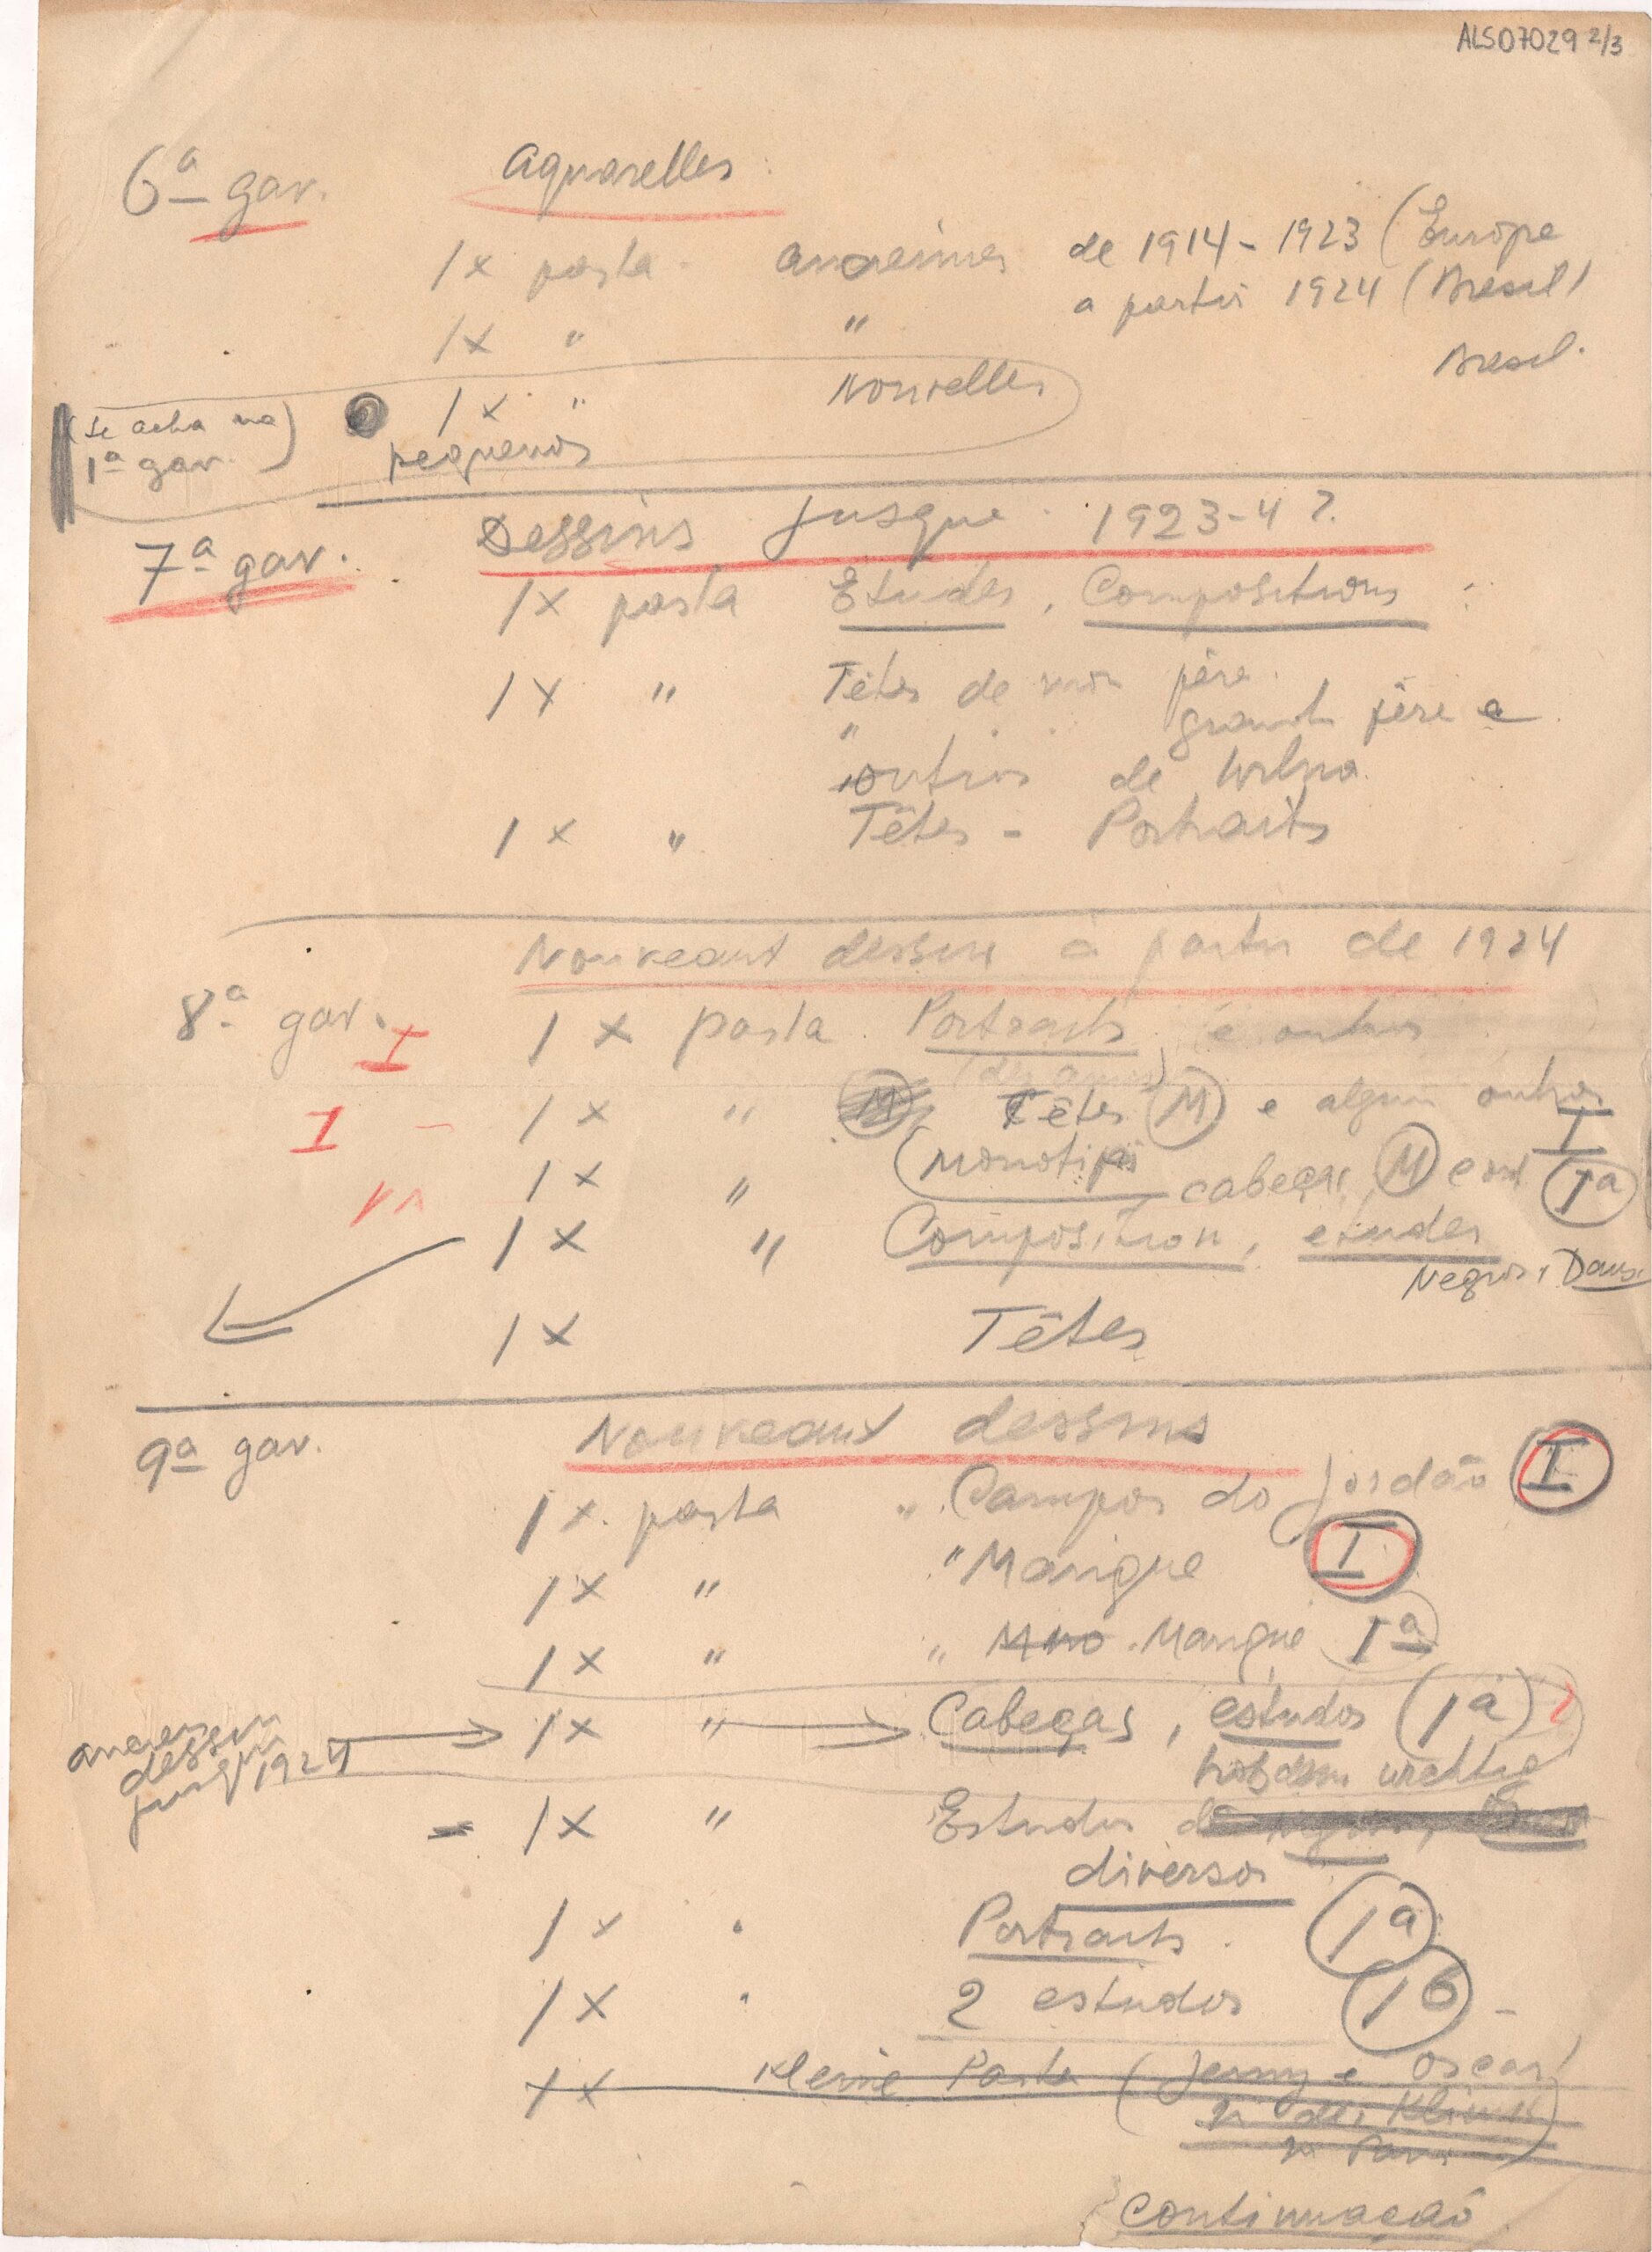 ALS07029 2/3
6ª gav. Aquarelles
1x pasta - anciennes de 1914 - 1923 (Europe
1x " " a partir 1924 (Bresil)
Bresil.
(se acha na 1ª gav.) 1x " Nouvelles
pequenos
7ª gav. Dessins jusque 1923-4?
1x pasta Etudes, Compositions
1x " Têtes de mon père
" grand père e
outros de Wilna
1x " Têtes - Portraits
Nouveaux dessins a partir de 1924
8ª gav. I 1x pasta Portraits e outros
I - 1x " Têtes (M) e algun outros I
1x " (monotipis cabeças, (M) e Iª
1x " Composition, etudes
Negros, Dans
1x Têtes
9ª gav. Nouveaux dessins
1x. pasta " Campos do Jordão I
1x " " Mangue I
1x " " Mangue Iª
anciens dessin jusqu 1924 1x " Cabeças, estudos (1a)
wichtig
- 1x " Estudos
diversos
1x " Portraits. 1a
1x " 2 estudos 1b -
1x Kleine Pasta (Jenny e Oscar)
in der Klinik
in Paris
Continuação